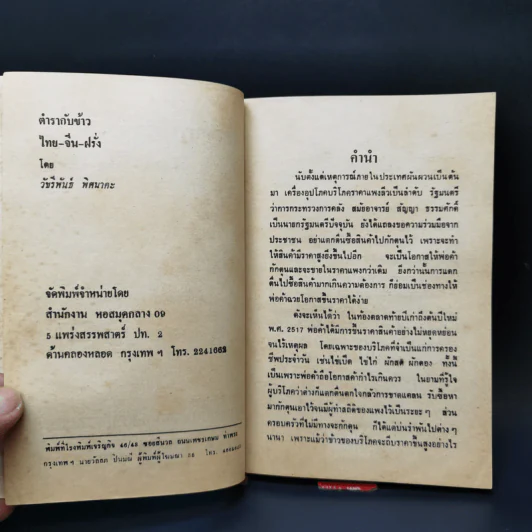 ตำรากับข้าว
ไทย-จีน-ฝรั่ง
โดย
วัชรีพันธ์ พิศนาคะ
จัดพิมพ์จำหน่ายโดย
สำนักงาน หอสมุดกลาง 09
5 แพร่งสรรพสาตร์ ปท. 2
ด้านคลองหลอด กรุงเทพ ฯ โทร. 2241663
คำนำ
นับตั้งแต่เหตุการณ์ภายในประเทศผันผวนเป็นต้น
มา เครื่องอุปโภคบริโภคราคาแพงลิ่วเป็นลำดับ รัฐมนตรี
ว่าการกระทรวงการคลัง สมัยอาจารย์ สัญญา ธรรมศักดิ์
เป็นนายกรัฐมนตรีปัจจุบัน ยังได้แถลงขอความร่วมมือจาก
ประชาชน อย่าแตกตื่นซื้อสินค้าไปกักตุนไว้ เพราะจะทำ
ให้สินค้ามีราคาสูงยิ่งขึ้นไปอีก จะเป็นโอกาสให้พ่อค้า
กักตุนและจะขายในราคาแพงกว่าเดิม ยิ่งกว่านั้นการแตก
ตื่นไปซื้อสินค้ามากเกินความต้องการ ก็ย่อมเป็นช่องทางให้
พ่อค้าฉวยโอกาสขึ้นราคาได้ง่าย
ดังจะเห็นได้ว่า ในท้องตลาดท้ายปีเก่าถึงต้นปีใหม่
พ.ศ. 2517 พ่อค้าได้มีการขึ้นราคาสินค้าอย่างไม่หยุดหย่อน
จนไร้เหตุผล โดยเฉพาะของบริโภคที่จำเป็นแก่การครอง
ชีพประจำวัน เช่นไข่เป็ด ไข่ไก่ ผักสด ผักดอง ทั้งนี้
เป็นเพราะพ่อค้าถือโอกาสค้ากำไรเกินควร ในยามที่รู้ใจ
ผู้บริโภคว่าต่างก็แตกตื่นตกใจกลัวการขาดแคลน รีบซื้อหา
มากักตุนเอาไว้จนมีผู้ทำสถิติของแพงไว้เป็นระยะๆ ส่วน
ครอบครัวที่ไม่มีเงินกักตุน ก็ได้แต่บ่นรำพันไปต่างๆ
นานา เพราะแม้ว่าข้าวของบริโภคจะถีบราคาขึ้นสูงอย่างไร